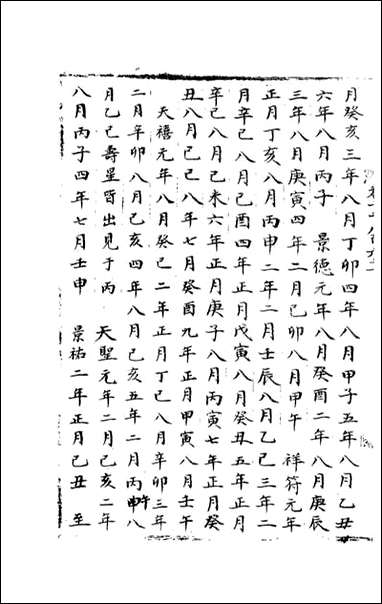 月癸亥三年八月丁卯四年八月甲子五年八月乙丑
六年八月丙子　景德元年八月癸酉二年八月庚辰
三年八月庚寅四年二月己卯八月甲午　祥符元年
正月丁亥八月丙申二年二月壬辰八月乙巳三年二
月辛巳八月己酉四年正月戊寅八月癸丑五年正月
辛巳八月己未六年正月庚子八月丙寅七年正月癸
丑八月己巳八年七月癸酉九年正月甲寅八月壬午
天禧元年八月癸巳二年正月丁巳八月辛卯三年
二月辛卯八月己亥四年八月己亥五年二月丙申午八
月乙巳壽星皆出見于丙　天聖元年二月己亥二年
八月丙子四年七月壬申　景祐二年正月己丑　至